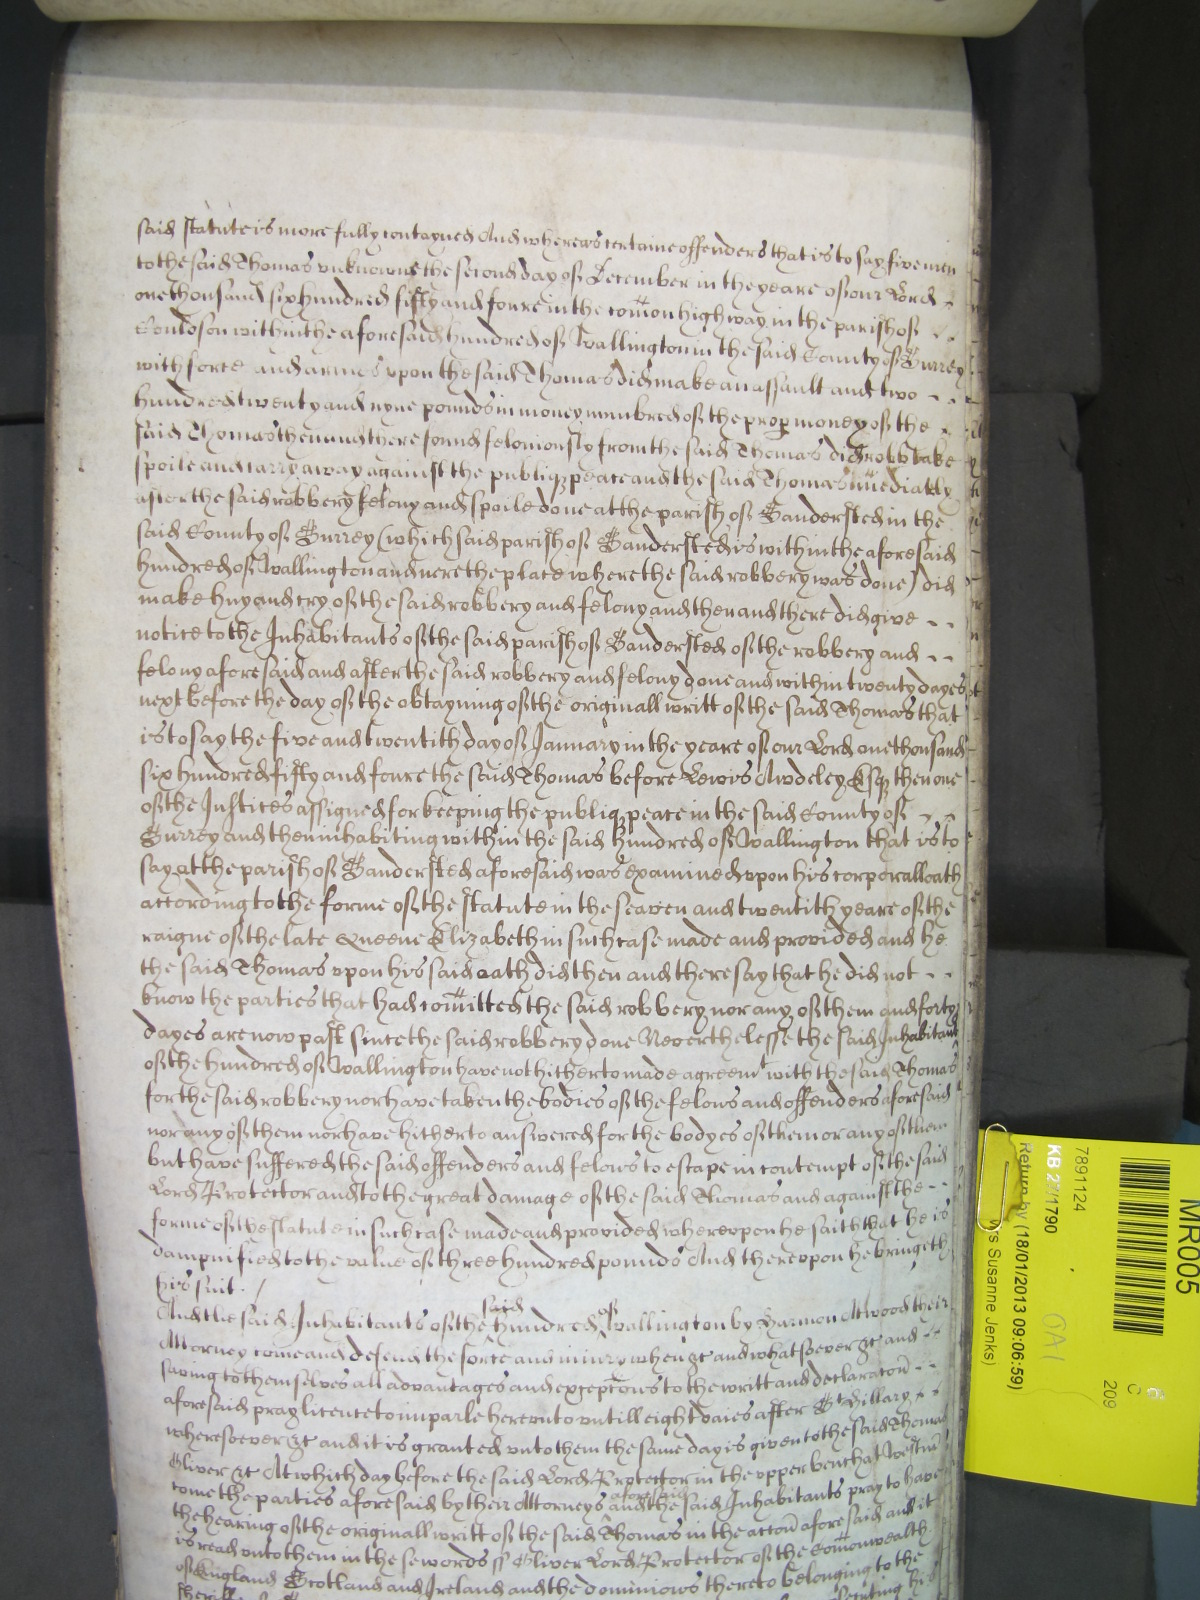 said statute is more fully contayned And whereas certaine offenders that is to say five men
to the said Thomas unknowne the second day of December in the yeare of our Lord
one thousand six hundred fifty and foure in the com̄on highway in the parish of
Coulson within the aforesaid hundred of Wallington in the said County of Surrey
with force and armes upon the said Thomas did make an assault and two
hundred twenty and nyne pounds in money numbred of the prop money of the
said Thomas then and there found feloniously from the said Thomas did robb take
spoile and carry away against the publiq peace and the said Thomas im̄ediately
after the said robbery felony and spoile done at the parish of Sandersted in the
said County of Surrey (which said parish of Sandersted is within the aforesaid
hundred of Wallington and nere the place where the said robbery was done) did
make huy and cry of the said robbery and felony and then and there did give
notice to the Inhabitants of the said parish of Sandersted of the robbery and
felony aforesaid and after the said robbery and felony done and within twenty dayes
next before the day of the obtayning of the originall writt of the said Thomas that
is to say the five and twentith day of January in the yeare of our Lord one thousand
six hundred fifty and foure the said Thomas before Lewis Awdeley Esq then one
of the Justices assigned for keeping the publiq peace in the said County of
Surrey and then inhabiting within the said hundred of Wallington that is to
say at the parish of Sandersted aforesaid was examined upon his corporall oath
according to the forme of the statute in the seaven and twentith yeare of the
raigne of the late Queene Elizabeth in such case made and provided and he
the said Thomas upon his said oath did then and there say that he did not
know the parties that had com̄itted the said robbery nor any of them and forty
dayes are now past since the said robbery done Neverthelesse the said Inhabitants
of the hundred of Wallington have not hitherto made agreemt with the said Thomas
for the said robbery nor have taken the bodies of the felons and offenders aforesaid
nor any of them nor have hitherto answered for the bodyes of them or any of them
but have suffered the said offenders and felons to escape in contempt of the said
Lord Protector and to the great damage of the said Thomas and against the
forme of the statute in such case made and provided whereupon he saith that he is
dampnified to the value of three hundred pounds And thereupon he bringeth
his suit /
And the said Inhabitants of the said hundred of Wallington by Harmon Atwood their
Attorney come and defend the force and iniury when &c and whatsoever &c and
saving to themselves all advantages and exceptions to the writt and declaracon
aforesaid pray licence to imparle hereunto untill eight daies after St Hillary
wheresoever &c and it is granted unto them the same day is given to the said Thomas
Oliver &c At which day before the said Lord Protector in the upper bench at Westmr
come the parties aforesaid by their Attorneys aforesaid and the said Inhabitants pray to have
the hearing of the originall writt of the said Thomas in the accon aforesaid and it
is read unto them in these words ss Oliver Lord Protector of the Com̄onwealth
of England Scotland and Ireland and the dominions thereto belonging to the
MR005
209
C
7891124
KB 27/1790
Return by (18/01/2013 09:06:59)
Susanne Jenks)